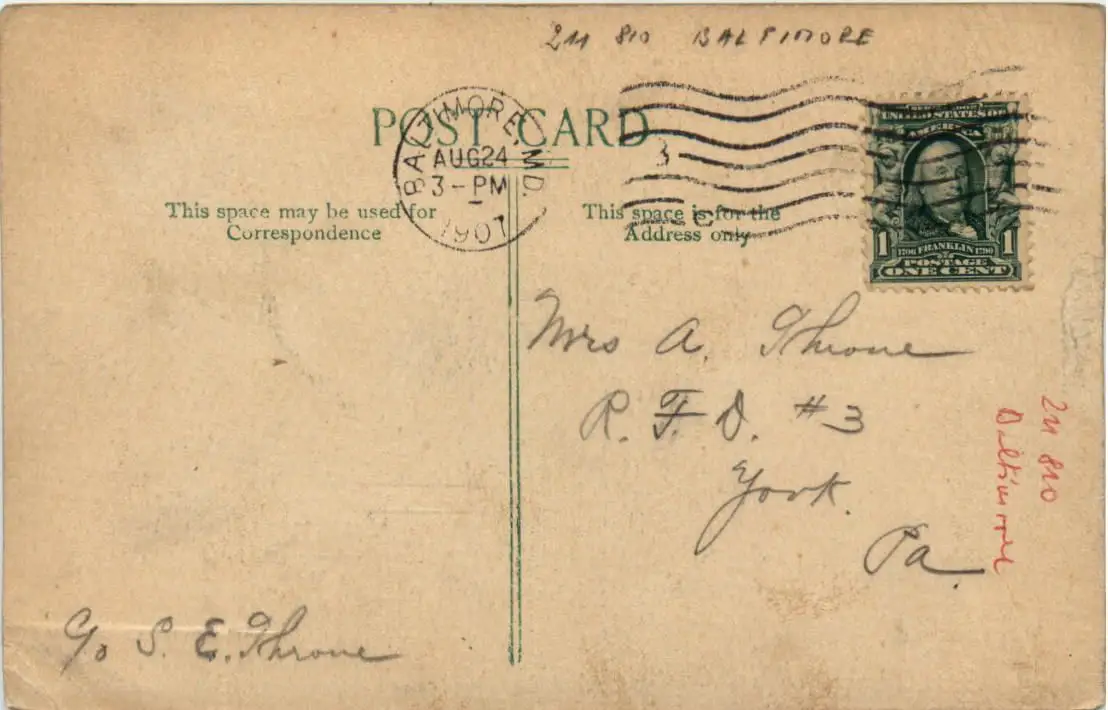 211 810 BALTIMORE
POST CARD
BALTIMORE, MD.
AUG 24
3-PM
1907
3
UNITED STATES OF
AMERICA
1 1706 FRANKLIN 1790 1
POSTAGE
ONE CENT
This space may be used for
Correspondence
This space is for the
Address only
Mrs A. Throne
R. F. D. #3
York.
Pa.
c/o S. E. Throne
211 810
Baltimore